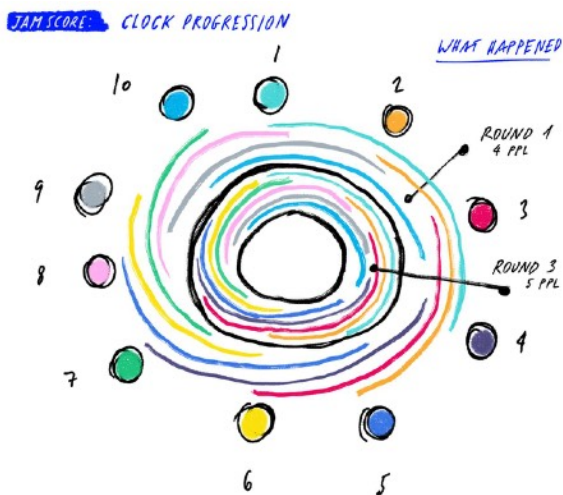 JAM SCORE: CLOCK PROGRESSION
WHAT HAPPENED
1
2
3
4
5
6
7
8
9
10
ROUND 1
4 PPL
ROUND 3
5 PPL